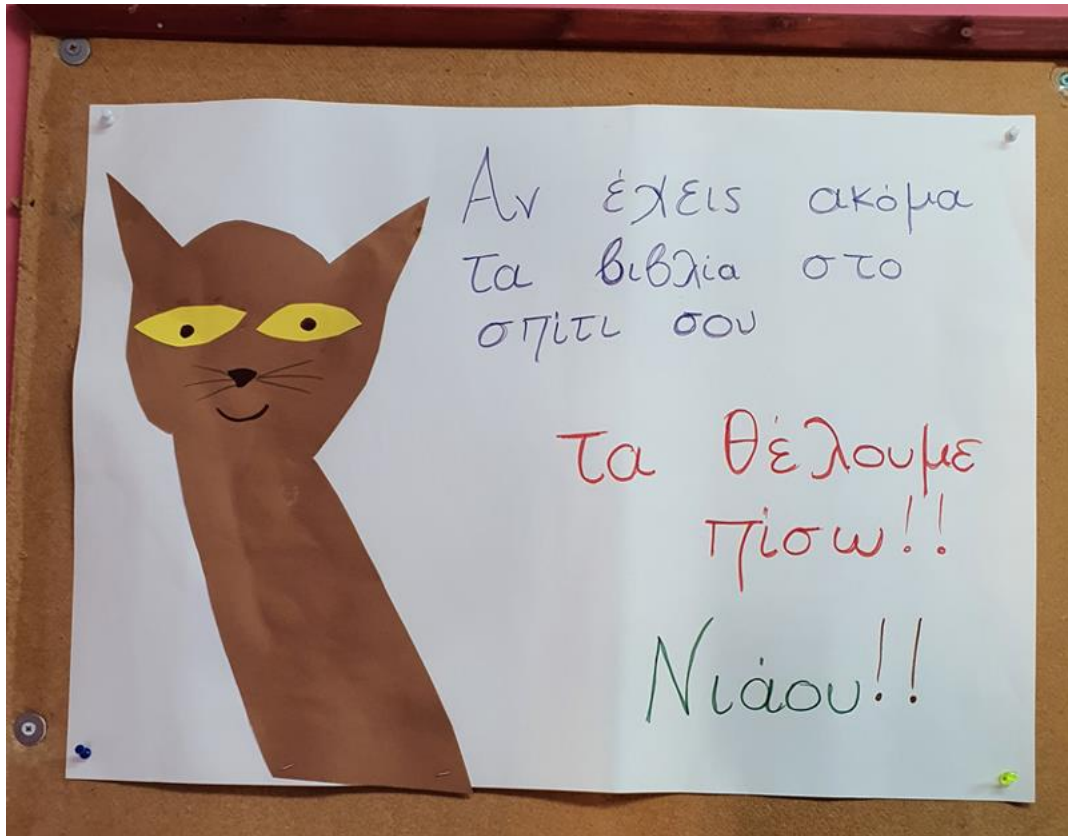 Αν έχεις ακόμα
τα βιβλία στο
σπίτι σου
τα θέλουμε
πίσω!!
Νιάου!!